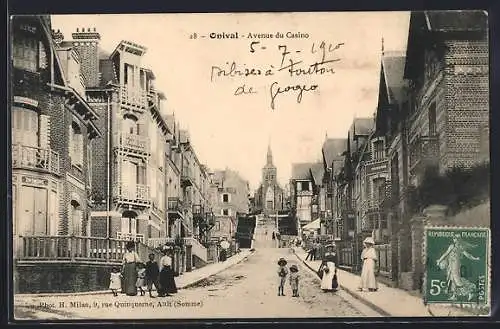 28 - Onival - Avenue du Casino
5-7-1910
à
de Georgeo
Phot. H. Milan, 9, rue Quinquerue, Ault (Somme)
REPUBLIQUE FRANÇAISE
5c
POSTES